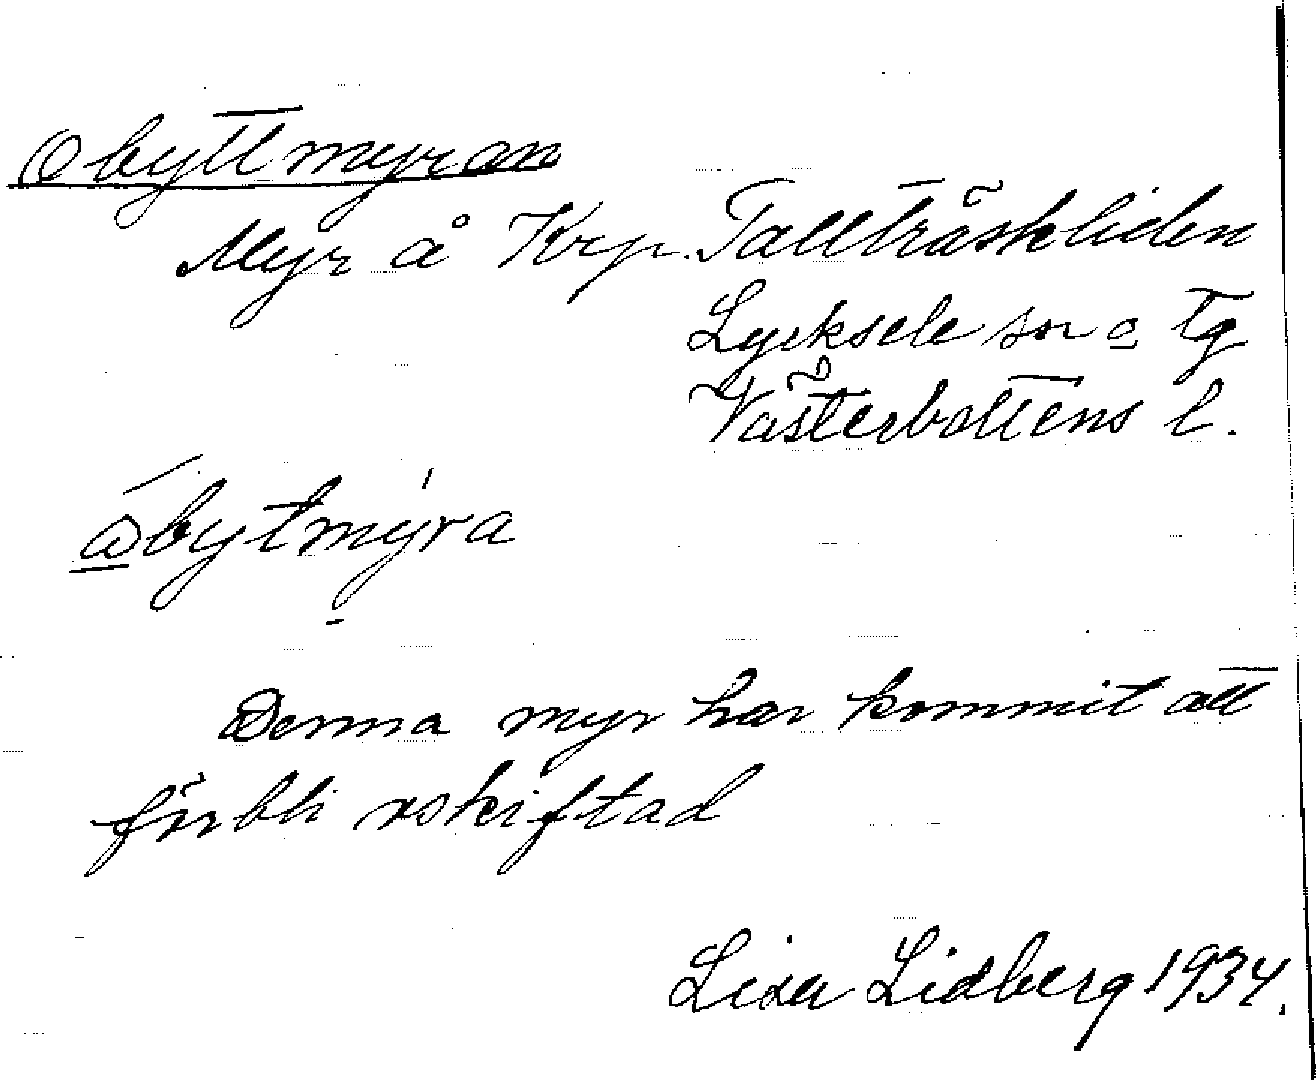 Obyttmyran
Myr å Krp. Tallträskliden
Lycksele sn o Tg
Västerbottens l.
åbytmýra
Denna myr har kommit att
förbli oskiftad
Lisa Lidberg 1934.